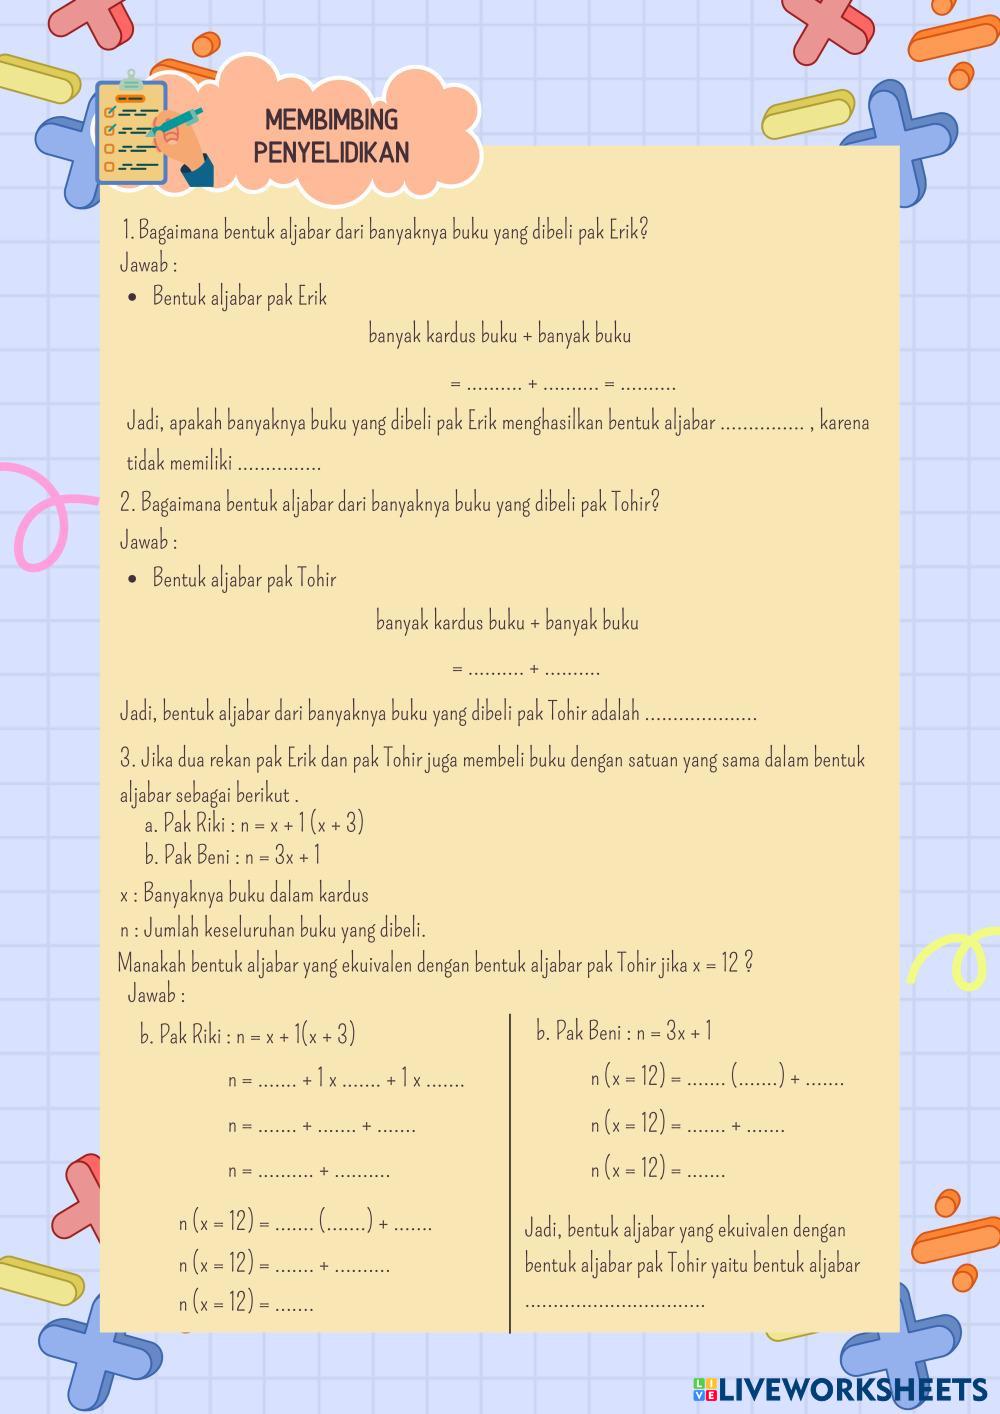 MEMBIMBING
PENYELIDIKAN
1. Bagaimana bentuk aljabar dari banyaknya buku yang dibeli pak Erik?
Jawab :
• Bentuk aljabar pak Erik
banyak kardus buku + banyak buku
= .......... + .......... = ..........
Jadi, apakah banyaknya buku yang dibeli pak Erik menghasilkan bentuk aljabar ............... , karena
tidak memiliki ...............
2. Bagaimana bentuk aljabar dari banyaknya buku yang dibeli pak Tohir?
Jawab :
• Bentuk aljabar pak Tohir
banyak kardus buku + banyak buku
= .......... + ..........
Jadi, bentuk aljabar dari banyaknya buku yang dibeli pak Tohir adalah ....................
3. Jika dua rekan pak Erik dan pak Tohir juga membeli buku dengan satuan yang sama dalam bentuk
aljabar sebagai berikut .
a. Pak Riki : n = x + 1 (x + 3)
b. Pak Beni : n = 3x + 1
x : Banyaknya buku dalam kardus
n : Jumlah keseluruhan buku yang dibeli.
Manakah bentuk aljabar yang ekuivalen dengan bentuk aljabar pak Tohir jika x = 12 ?
Jawab :
b. Pak Riki : n = x + 1(x + 3)
n = ....... + 1 x ....... + 1 x .......
n = ....... + ....... + .......
n = .......... + ..........
n (x = 12) = ....... (.......) + .......
n (x = 12) = ....... + ..........
n (x = 12) = .......
b. Pak Beni : n = 3x + 1
n (x = 12) = ....... (.......) + .......
n (x = 12) = ....... + .......
n (x = 12) = .......
Jadi, bentuk aljabar yang ekuivalen dengan
bentuk aljabar pak Tohir yaitu bentuk aljabar
................................
LIVE LIVEWORKSHEETS